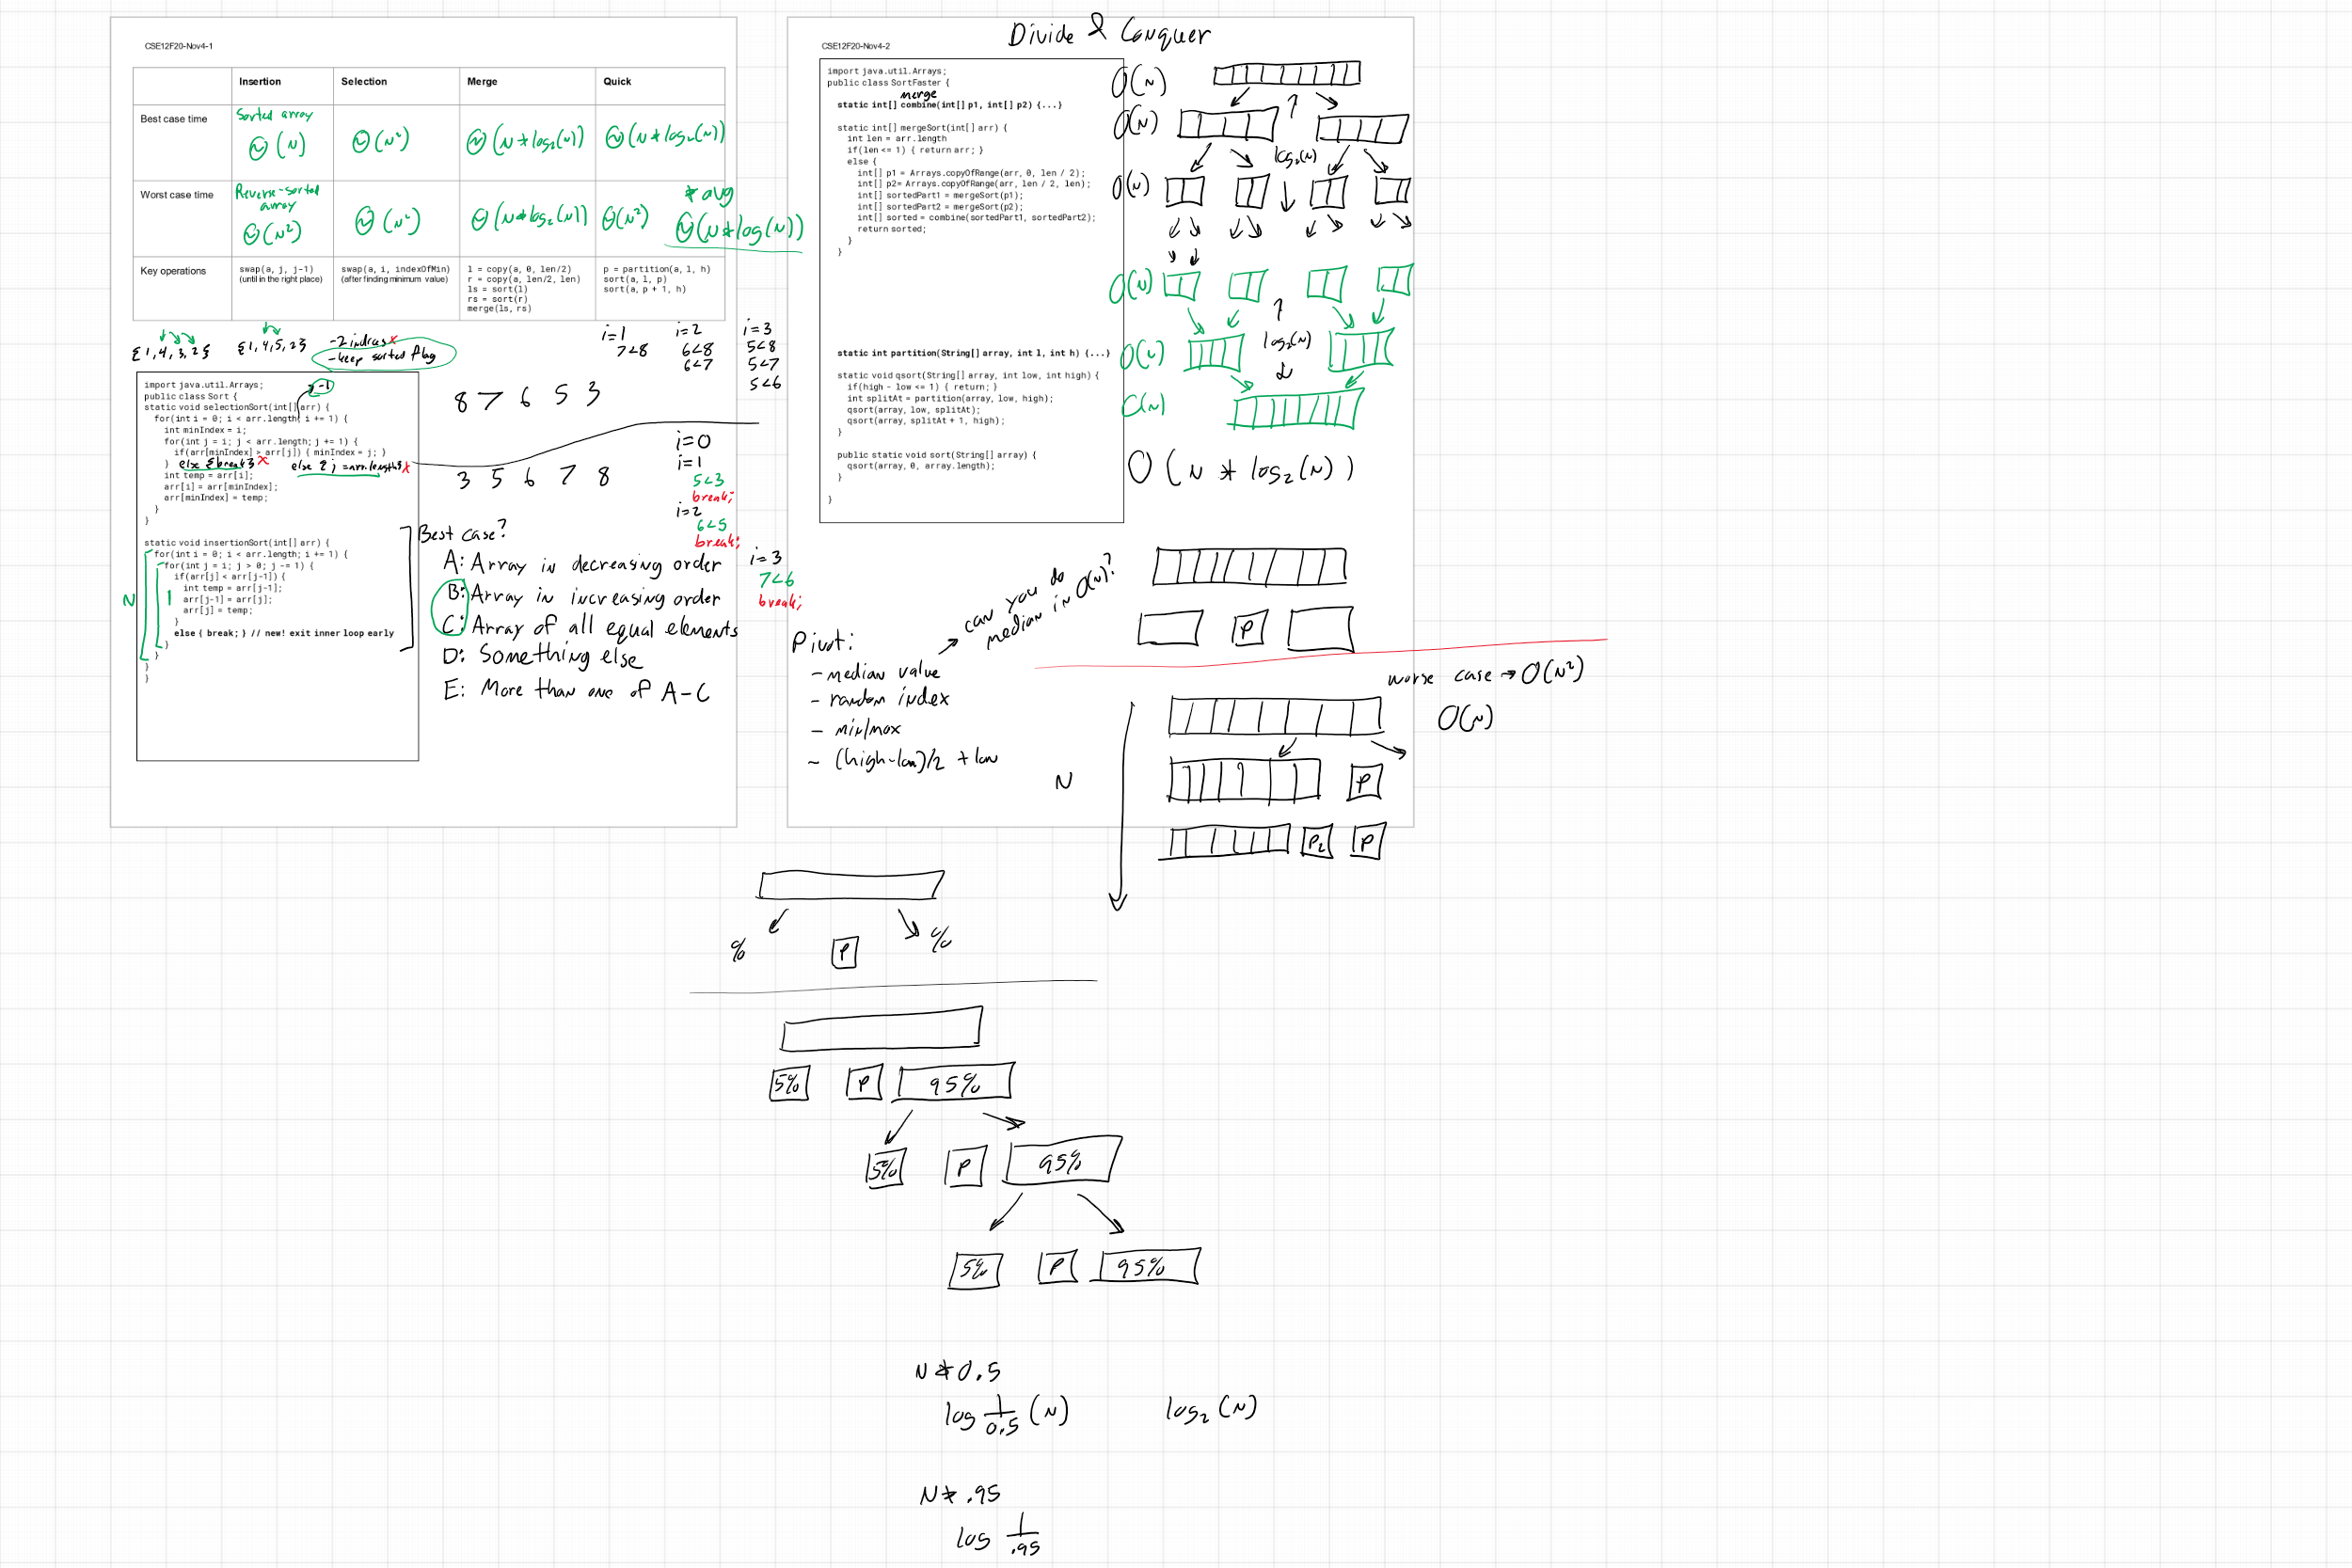 CSE12F20-Nov4-1
Insertion Selection Merge Quick
Best case time
Sorted array
Θ(N)
Θ(N²)
Θ(N*log₂(N))
Θ(N*log₂(N))
Worst case time
Reverse-sorted
array
Θ(N²)
Θ(N²)
Θ(N*log₂(N))
Θ(N²)
* avg
Θ(N*log(N))
Key operations
swap(a, j, j-1)
(until in the right place)
swap(a, i, indexOfMin)
(after finding minimum value)
l = copy(a, 0, len/2)
r = copy(a, len/2, len)
ls = sort(l)
rs = sort(r)
merge(ls, rs)
p = partition(a, l, h)
sort(a, l, p)
sort(a, p + 1, h)
{1, 4, 3, 2}
{1, 4, 5, 2}
-2 indices x
-keep sorted flag
i=1
7<8
i=2
6<8
6<7
i=3
5<8
5<7
5<6
-1
import java.util.Arrays;
public class Sort {
static void selectionSort(int[] arr) {
for(int i = 0; i < arr.length; i += 1) {
int minIndex = i;
for(int j = i; j < arr.length; j += 1) {
if(arr[minIndex] > arr[j]) { minIndex = j; }
} else {break} x else { j = arr.length} x
int temp = arr[i];
arr[i] = arr[minIndex];
arr[minIndex] = temp;
}
}
static void insertionSort(int[] arr) {
for(int i = 0; i < arr.length; i += 1) {
for(int j = i; j > 0; j -= 1) {
if(arr[j] < arr[j-1]) {
int temp = arr[j-1];
arr[j-1] = arr[j];
arr[j] = temp;
}
else { break; } // new! exit inner loop early
}
}
}
}
N
1
8 7 6 5 3
3 5 6 7 8
i=0
i=1
5<3
break;
i=2
6<5
break;
i=3
7<6
break;
Best case?
A: Array in decreasing order
B: Array in increasing order
C: Array of all equal elements
D: Something else
E: More than one of A-C
Divide & Conquer
CSE12F20-Nov4-2
import java.util.Arrays;
public class SortFaster {
merge
static int[] combine(int[] p1, int[] p2) {...}
static int[] mergeSort(int[] arr) {
int len = arr.length
if(len <= 1) { return arr; }
else {
int[] p1 = Arrays.copyOfRange(arr, 0, len / 2);
int[] p2= Arrays.copyOfRange(arr, len / 2, len);
int[] sortedPart1 = mergeSort(p1);
int[] sortedPart2 = mergeSort(p2);
int[] sorted = combine(sortedPart1, sortedPart2);
return sorted;
}
}
static int partition(String[] array, int l, int h) {...}
static void qsort(String[] array, int low, int high) {
if(high - low <= 1) { return; }
int splitAt = partition(array, low, high);
qsort(array, low, splitAt);
qsort(array, splitAt + 1, high);
}
public static void sort(String[] array) {
qsort(array, 0, array.length);
}
}
O(N)
O(N)
log₂(N)
O(N)
O(N)
O(N)
log₂(N)
O(N)
O(N * log₂(N))
P
Pivot:
- median value
- random index
- min/max
- (high-low)/2 + low
can you do
median in O(N)?
worse case → O(N²)
O(N)
N
P
P₂ P
% P %
5% P 95%
5% P 95%
5% P 95%
N * 0.5
log 1/0.5 (N) log₂(N)
N * .95
log 1/.95